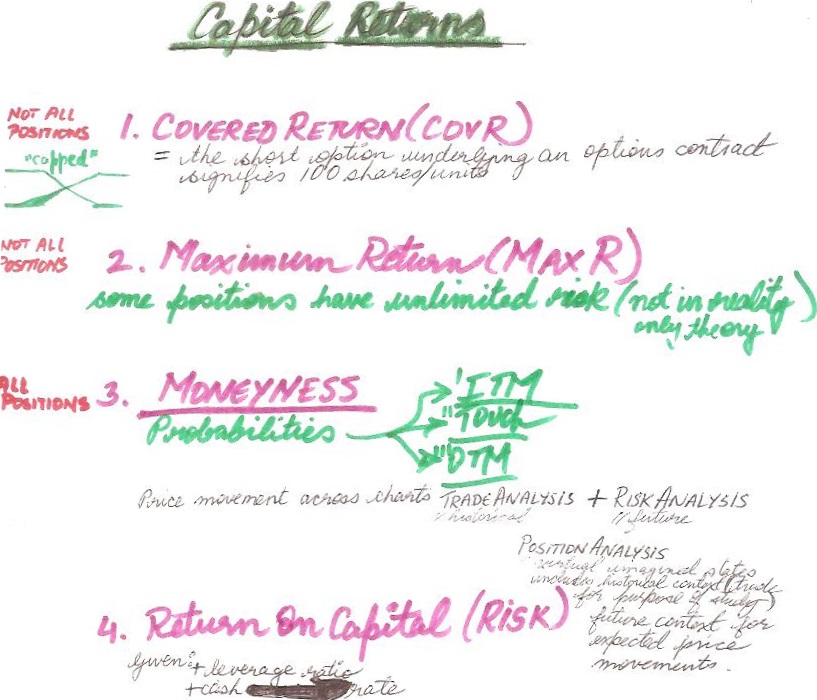 Capital Returns
NOT ALL
POSITIONS
1. COVERED RETURN (COVR)
"capped"
= the short option underlying an options contract
signifies 100 shares/units
NOT ALL
POSITIONS
2. Maximum Return (MAX R)
some positions have unlimited risk (not in reality)
only theory
ALL
POSITIONS
3. MONEYNESS
Probabilities
'ITM
"Touch
"OTM
Price movement across charts TRADE ANALYSIS + RISK ANALYSIS
"historical
"future
POSITION ANALYSIS
virtual imagined states
includes historical context (trade
for purpose of study)
future context for
expected price
movements.
4. Return On Capital (RISK)
Given: + leverage ratio
+ cash rate